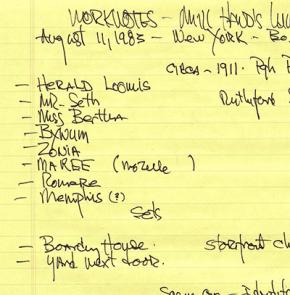 WORKNOTES – MILL HAND'S LU
August 11, 1983 – New York – Bo
CIRCA – 1911. Pgh P
– HERALD LOOMIS
– MR. Seth
Rutherford S
– Miss Bertha
– BYNUM
– ZONIA
– MAREE (Mozelle )
– Romare
– Memphis (?)
Sets
– Boarding House. storefront ch
– Yard next door.